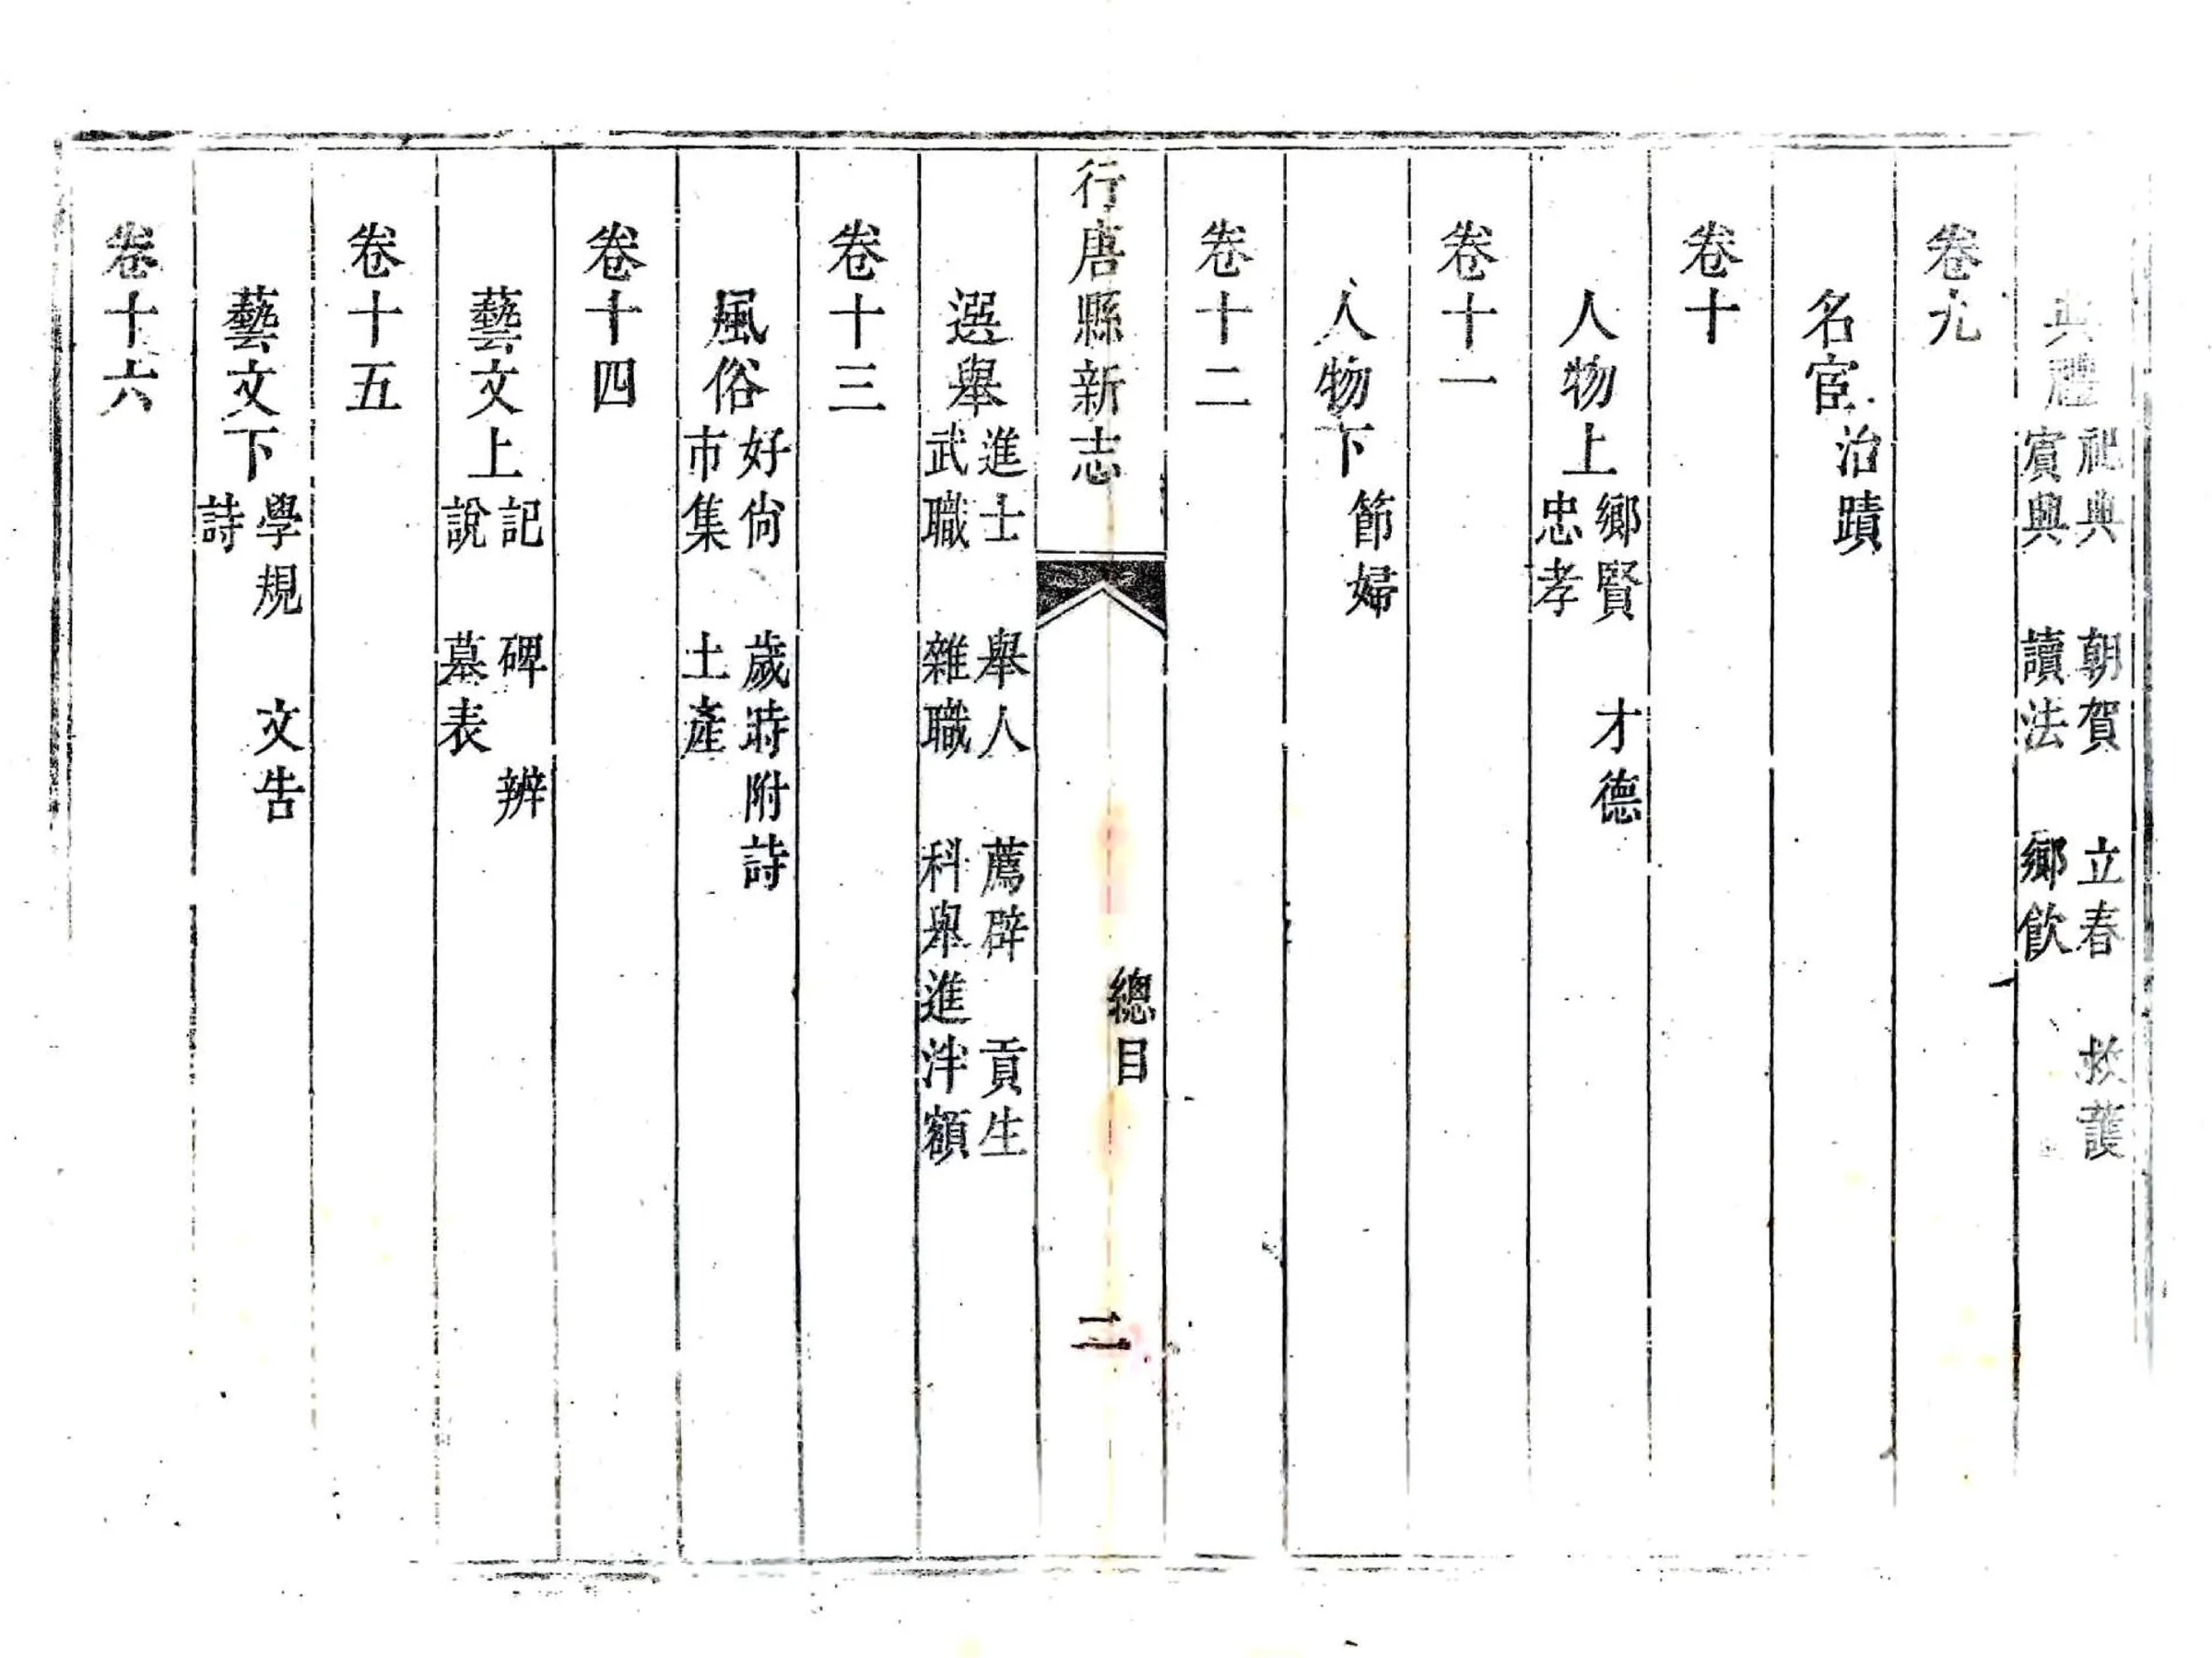 典禮 祀典 朝賀 立春 救護
賓興 讀法 鄉飲
卷九
名宦 治蹟
卷十
人物上 鄉賢 才德
忠孝
卷十一
人物下 節婦
卷十二
行唐縣新志
總目
二
選舉 進士 舉人 薦辟 貢生
武職 雜職 科舉進泮額
卷十三
風俗 好尚 歲時附詩
市集 土產
卷十四
藝文上 記 碑 辨
說 墓表
卷十五
藝文下 學規 文告
詩
卷十六